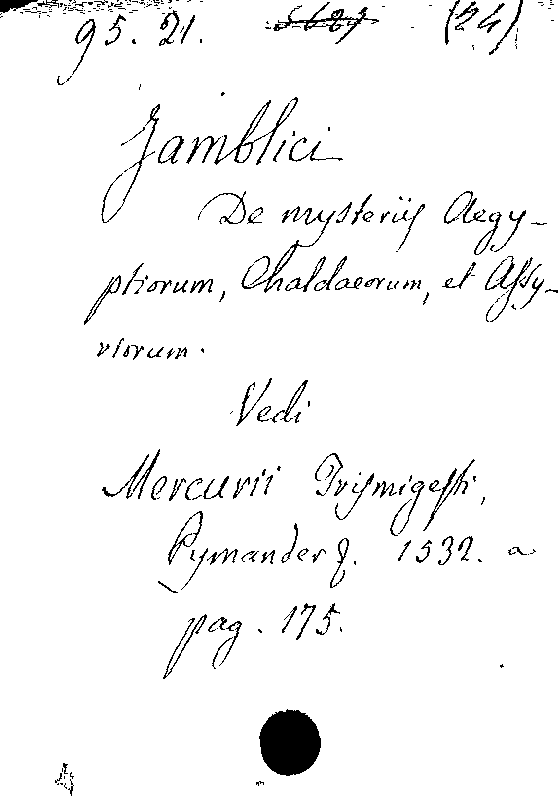 95. 21. 5687 (24)
Jamblici
De mysteriis Aegy-
ptiorum, Chaldaeorum, et Assy-
riorum.
Vedi
Mercurii Trismigesti,
Pymander. 1532. a
pag. 175.